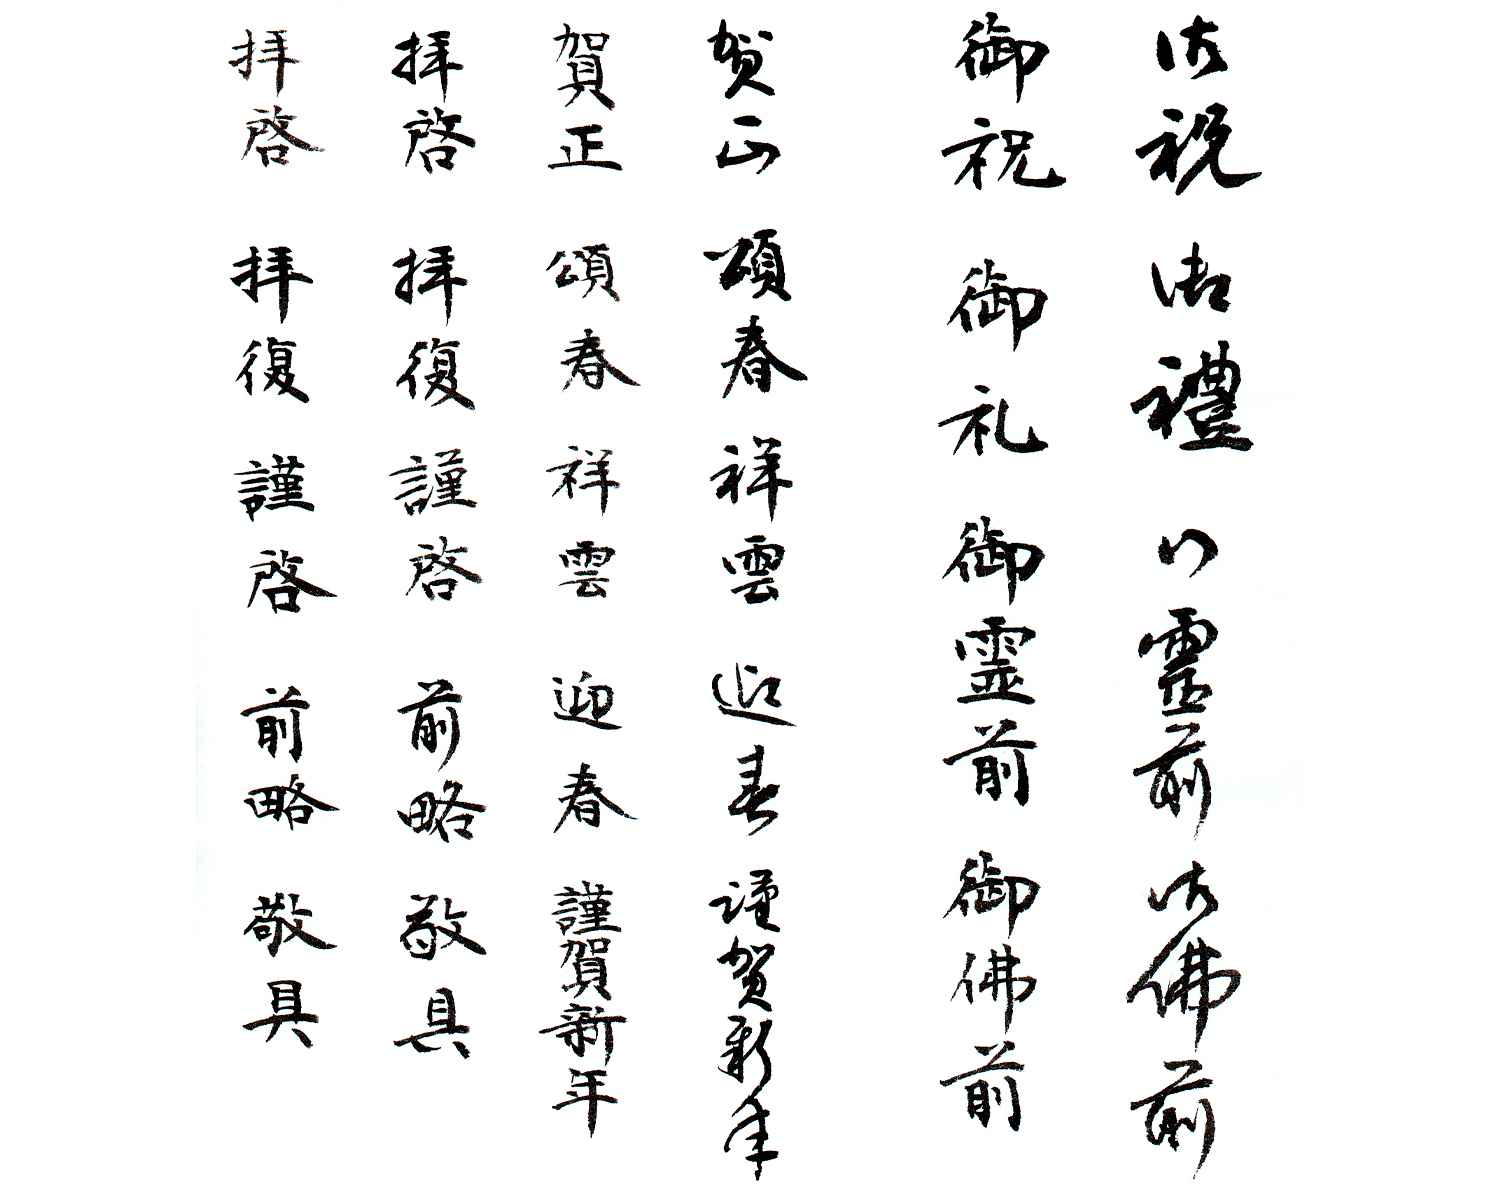 御祝 御禮 御霊前 御佛前
御祝 御礼 御霊前 御佛前
賀正 頌春 祥雲 迎春 謹賀新年
賀正 頌春 祥雲 迎春 謹賀新年
拝啓 拝復 謹啓 前略 敬具
拝啓 拝復 謹啓 前略 敬具